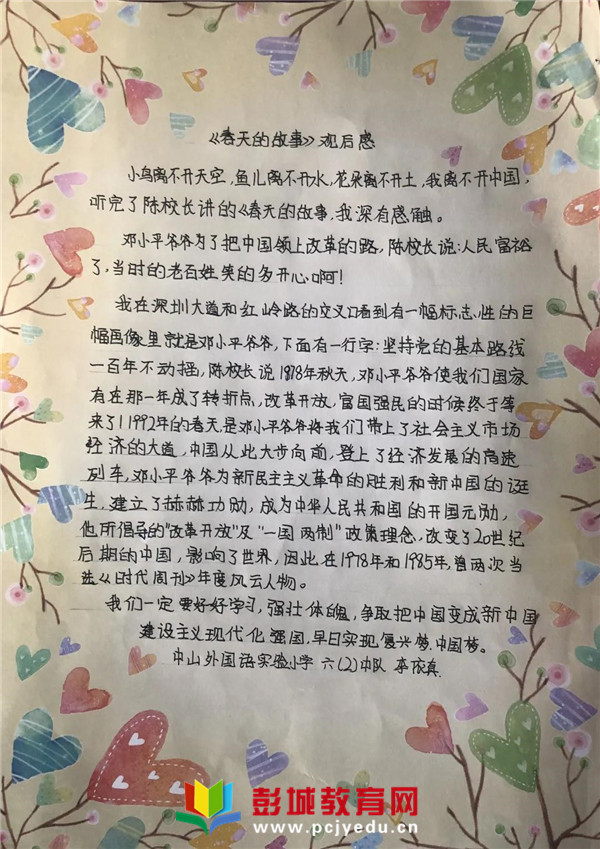 《春天的故事》观后感
小鸟离不开天空，鱼儿离不开水，花朵离不开土，我离不开中国，
听完了陈校长讲的《春天的故事，我深有感触。
邓小平爷爷为了把中国领上改革的路，陈校长说：人民富裕
了，当时的老百姓笑的多开心啊！
我在深圳大道和红岭路的交叉口看到有一幅标志性的巨
幅画像里就是邓小平爷爷，下面有一行字：坚持党的基本路线
一百年不动摇，陈校长说1978年秋天，邓小平爷爷使我们国家
有在那一年成了转折点，改革开放，富国强民的时候终于等
来了！1992年的春天是邓小平爷爷将我们带上了社会主义市场
经济的大道，中国从此大步向前，登上了经济发展的高速
列车，邓小平爷爷为新民主主义革命的胜利和新中国的诞
生，建立了赫赫功勋，成为中华人民共和国的开国元勋，
他所倡导的"改革开放"及"一国两制"政策理念，改变了20世纪
后期的中国，影响了世界，因此在1978年和1985年，曾两次当
选《时代周刊》年度风云人物。
我们一定要好好学习，强壮体魄，争取把中国变成新中国
建设主义现代化强国，早日实现复兴梦.中国梦。
中山外国语实验小学 六(2)中队 李依真
彭城教育网
www.pcjyedu.cn